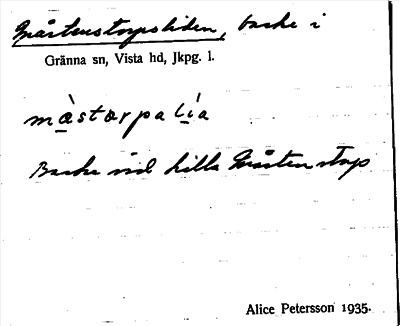 Mårtenstorpsliden, backe i
Gränna sn, Vista hd, Jkpg. l.
màstɒrpa lía
Backe vid lilla Mårtenstorp
Alice Petersson 1935.